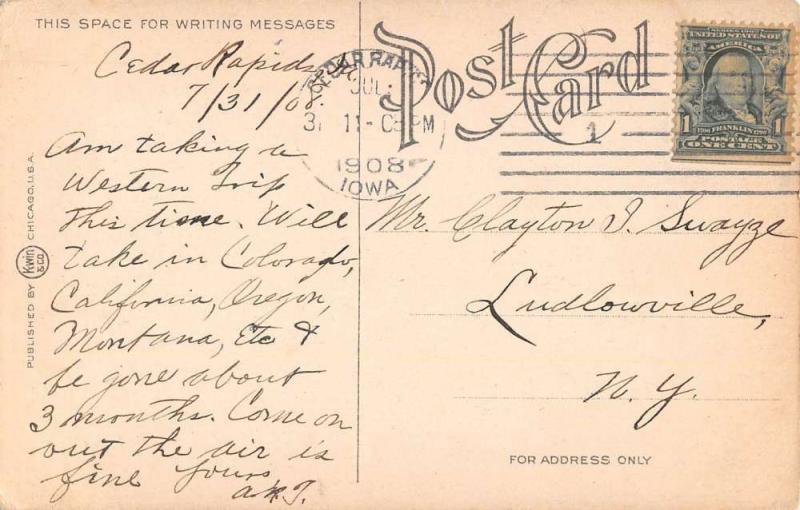 THIS SPACE FOR WRITING MESSAGES
Post Card
Cedar Rapids, Ia
7/31/08.
Am taking a
Western Trip
this time. Will
take in Colorado,
California, Oregon,
Montana, Etc &
be gone about
3 months. Come on
out the air is
fine Yours
CEDAR RAPIDS
JUL
31 11-
PM
1908
IOWA
1
UNITED STATES OF
AMERICA
1 FRANKLIN 1
POSTAGE
ONE CENT
Mr. Clayton I. Swayze
Ludlowville,
N. Y.
FOR ADDRESS ONLY
PUBLISHED BY Kwin & Co CHICAGO, U.S.A.